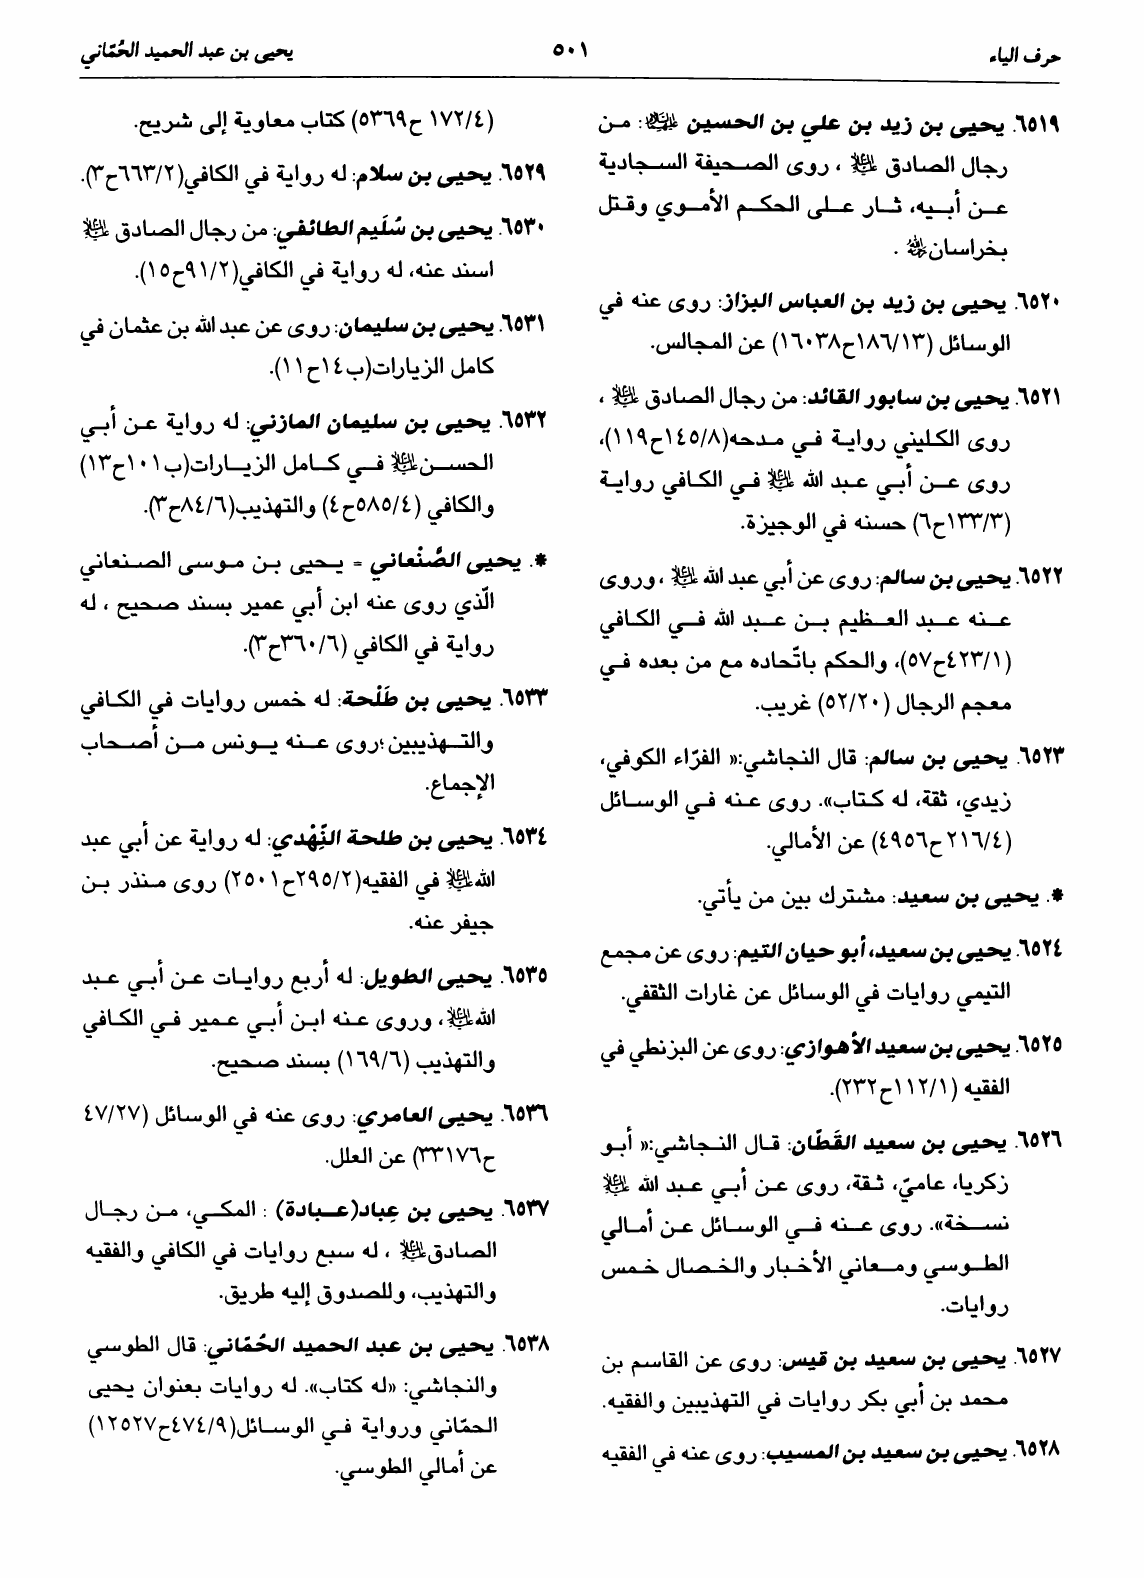 حرف الياء
٥٠١
يحيى بن عبد الحميد الحُمّاني
٦٥١٩. يحيى بن زيد بن علي بن الحسين: من
رجال الصادق ، روى الصحيفة السجادية
عن أبيه، ثار على الحكم الأموي وقتل
بخراسان .
٦٥٢٠. يحيى بن زيد بن العباس البزاز: روى عنه في
الوسائل (١٨٦/١٣ح١٦٠٣٨) عن المجالس.
٦٥٢١. يحيى بن سابور القائد: من رجال الصادق ،
روى الكليني رواية في مدحه(١٤٥/٨ح١١٩)،
روى عن أبي عبد الله في الكافي رواية
(١٣٣/٣ح٦) حسنه في الوجيزة.
٦٥٢٢. يحيى بن سالم: روى عن أبي عبد الله ، وروى
عنه عبد العظيم بن عبد الله في الكافي
(٤٢٣/١ح٥٧)، والحكم باتّحاده مع من بعده في
معجم الرجال (٥٢/٢٠) غريب.
٦٥٢٣. يحيى بن سالم: قال النجاشي:« الفرّاء الكوفي،
زيدي، ثقة، له كتاب». روى عنه في الوسائل
(٢١٦/٤ح٤٩٥٦) عن الأمالي.
*. يحيى بن سعيد: مشترك بين من يأتي.
٦٥٢٤. يحيى بن سعيد، أبو حيان التيم: روى عن مجمع
التيمي روايات في الوسائل عن غارات الثقفي.
٦٥٢٥. يحيى بن سعيد الأهوازي: روى عن البزنطي في
الفقيه (١١٢/١ح٢٣٢).
٦٥٢٦. يحيى بن سعيد القَطّان: قال النجاشي:« أبو
زكريا، عاميّ، ثقة، روى عن أبي عبد الله
نسخة». روى عنه في الوسائل عن أمالي
الطوسي ومعاني الأخبار والخصال خمس
روايات.
٦٥٢٧. يحيى بن سعيد بن قيس: روى عن القاسم بن
محمد بن أبي بكر روايات في التهذيبين والفقيه.
٦٥٢٨. يحيى بن سعيد بن المسيب: روى عنه في الفقيه
(١٧٢/٤ ح٥٣٦٩) كتاب معاوية إلى شريح.
٦٥٢٩. يحيى بن سلام: له رواية في الكافي(٦٦٣/٢ح٣).
٦٥٣٠. يحيى بن سُلَيم الطائفي: من رجال الصادق
اسند عنه، له رواية في الكافي(٩١/٢ح١٥).
٦٥٣١. يحيى بن سليمان: روى عن عبد الله بن عثمان في
كامل الزيارات(ب١٤ح١١).
٦٥٣٢. يحيى بن سليمان المازني: له رواية عن أبي
الحسن في كامل الزيارات(ب١٠١ح١٣)
والكافي (٥٨٥/٤ح٤) والتهذيب(٨٤/٦ح٣).
*. يحيى الصَّنْعاني = يحيى بن موسى الصنعاني
الّذي روى عنه ابن أبي عمير بسند صحيح ، له
رواية في الكافي (٣٦٠/٦ح٣).
٦٥٣٣. يحيى بن طَلْحة: له خمس روايات في الكافي
والتهذيبين؛روى عنه يونس من أصحاب
الإجماع.
٦٥٣٤. يحيى بن طلحة النَّهْدي: له رواية عن أبي عبد
الله في الفقيه(٢٩٥/٢ح٢٥٠١) روى منذر بن
جيفر عنه.
٦٥٣٥. يحيى الطويل: له أربع روايات عن أبي عبد
الله، وروى عنه ابن أبي عمير في الكافي
والتهذيب (١٦٩/٦) بسند صحيح.
٦٥٣٦. يحيى العامري: روى عنه في الوسائل (٤٧/٢٧
ح٣٣١٧٦) عن العلل.
٦٥٣٧. يحيى بن عِباد(عبادة) : المكي، من رجال
الصادق ، له سبع روايات في الكافي والفقيه
والتهذيب، وللصدوق إليه طريق.
٦٥٣٨. يحيى بن عبد الحميد الحُمّاني: قال الطوسي
والنجاشي: «له كتاب». له روايات بعنوان يحيى
الحمّاني ورواية في الوسائل(٤٧٤/٩ح١٢٥٢٧)
عن أمالي الطوسي.